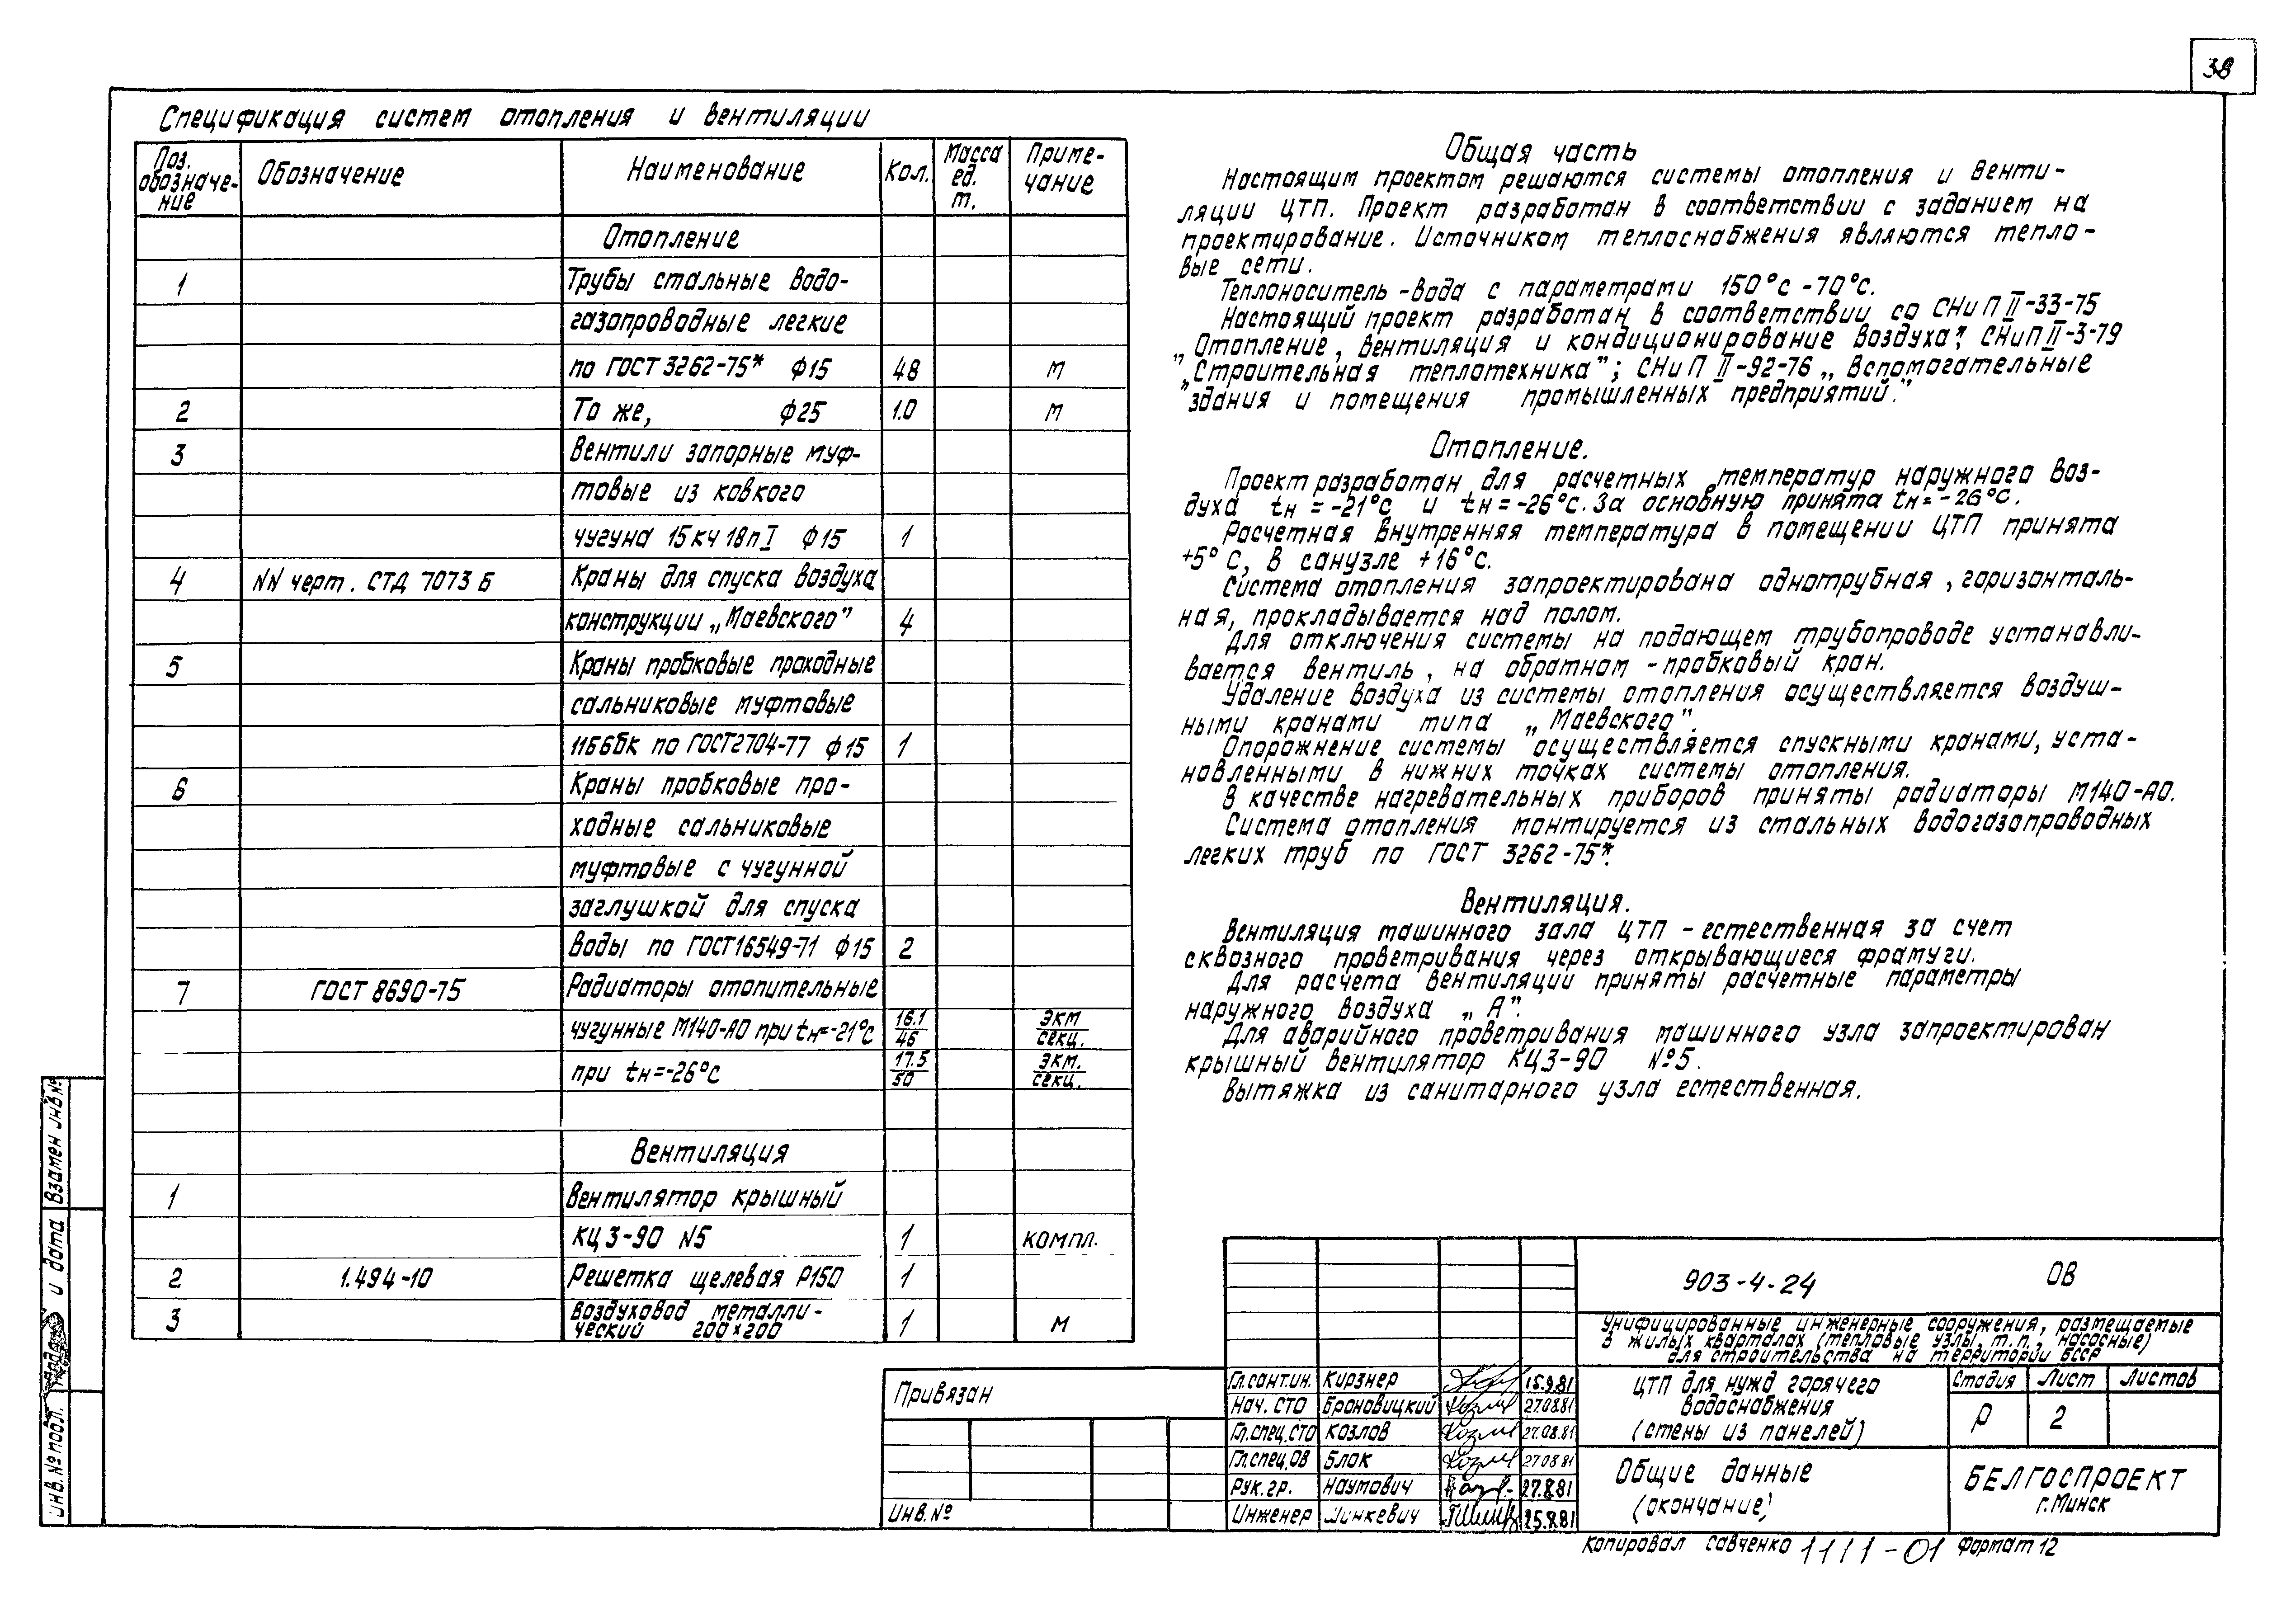 38
Спецификация систем отопления и вентиляции
Поз. обозначе-ние Обозначение Наименование Кол. Масса ед. т. Приме-чание
Отопление
1 Трубы стальные водо-
газопроводные легкие
по ГОСТ 3262-75* ф15 48 м
2 То же, ф25 1.0 м
3 Вентили запорные муф-
товые из ковкого
чугуна 15кч 18пI ф15 1
4 NN черт. СТД 7073 Б Краны для спуска воздуха
конструкции „Маевского" 4
5 Краны пробковые проходные
сальниковые муфтовые
11Б6бк по ГОСТ2704-77 ф15 1
6 Краны пробковые про-
ходные сальниковые
муфтовые с чугунной
заглушкой для спуска
воды по ГОСТ16549-71 ф15 2
7 ГОСТ 8690-75 Радиаторы отопительные
чугунные М140-АО при tн=-21°С 16.1/46 экм/секц.
при tн=-26°С 17.5/50 экм./секц.
Вентиляция
1 Вентилятор крышный
КЦ3-90 N5 1 компл.
2 1.494-10 Решетка щелевая Р150 1
3 Воздуховод металли-
ческий 200×200 1 м
Общая часть
Настоящим проектом решаются системы отопления и венти-
ляции ЦТП. Проект разработан в соответствии с заданием на
проектирование. Источником теплоснабжения являются тепло-
вые сети.
Теплоноситель - вода с параметрами 150°с -70°с.
Настоящий проект разработан в соответствии со СНиП II-33-75
„Отопление, вентиляция и кондиционирование воздуха"; СНиП II-3-79
„Строительная теплотехника"; СНиП II-92-76 „Вспомогательные
здания и помещения промышленных предприятий."
Отопление.
Проект разработан для расчетных температур наружного воз-
духа tн = -21°с и tн = -26°с. За основную принята tн = -26°с.
Расчетная внутренняя температура в помещении ЦТП принята
+5°С, в санузле +16°с.
Система отопления запроектирована однотрубная, горизонталь-
ная, прокладывается над полом.
Для отключения системы на подающем трубопроводе устанавли-
вается вентиль, на обратном - пробковый кран.
Удаление воздуха из системы отопления осуществляется воздуш-
ными кранами типа „Маевского".
Опорожнение системы осуществляется спускными кранами, уста-
новленными в нижних точках системы отопления.
В качестве нагревательных приборов приняты радиаторы М140-АО.
Система отопления монтируется из стальных водогазопроводных
легких труб по ГОСТ 3262-75*.
Вентиляция.
Вентиляция машинного зала ЦТП - естественная за счет
сквозного проветривания через открывающиеся фрамуги.
Для расчета вентиляции приняты расчетные параметры
наружного воздуха „А".
Для аварийного проветривания машинного узла запроектирован
крышный вентилятор КЦ3-90 №5.
Вытяжка из санитарного узла естественная.
903-4-24 ОВ
Унифицированные инженерные сооружения, размещаемые
в жилых кварталах (тепловые узлы, т.п., насосные)
для строительства на территории БССР
Гл.сант.ин. Кирзнер 15.9.81
Нач. СТО Броновицкий 27.08.81
Гл.спец.СТО Козлов 27.08.81
Гл.спец.ОВ Блок 27.08.81
Рук. гр. Наумович 27.8.81
Инженер 25.8.81
ЦТП для нужд горячего
водоснабжения
(стены из панелей)
Стадия Лист Листов
Р 2
Общие данные
(окончание)
БЕЛГОСПРОЕКТ
г. Минск
Привязан
Инв. №
Инв. № подл. и дата Взамен инв. №
Копировал Савченко 1111-01 Формат 12